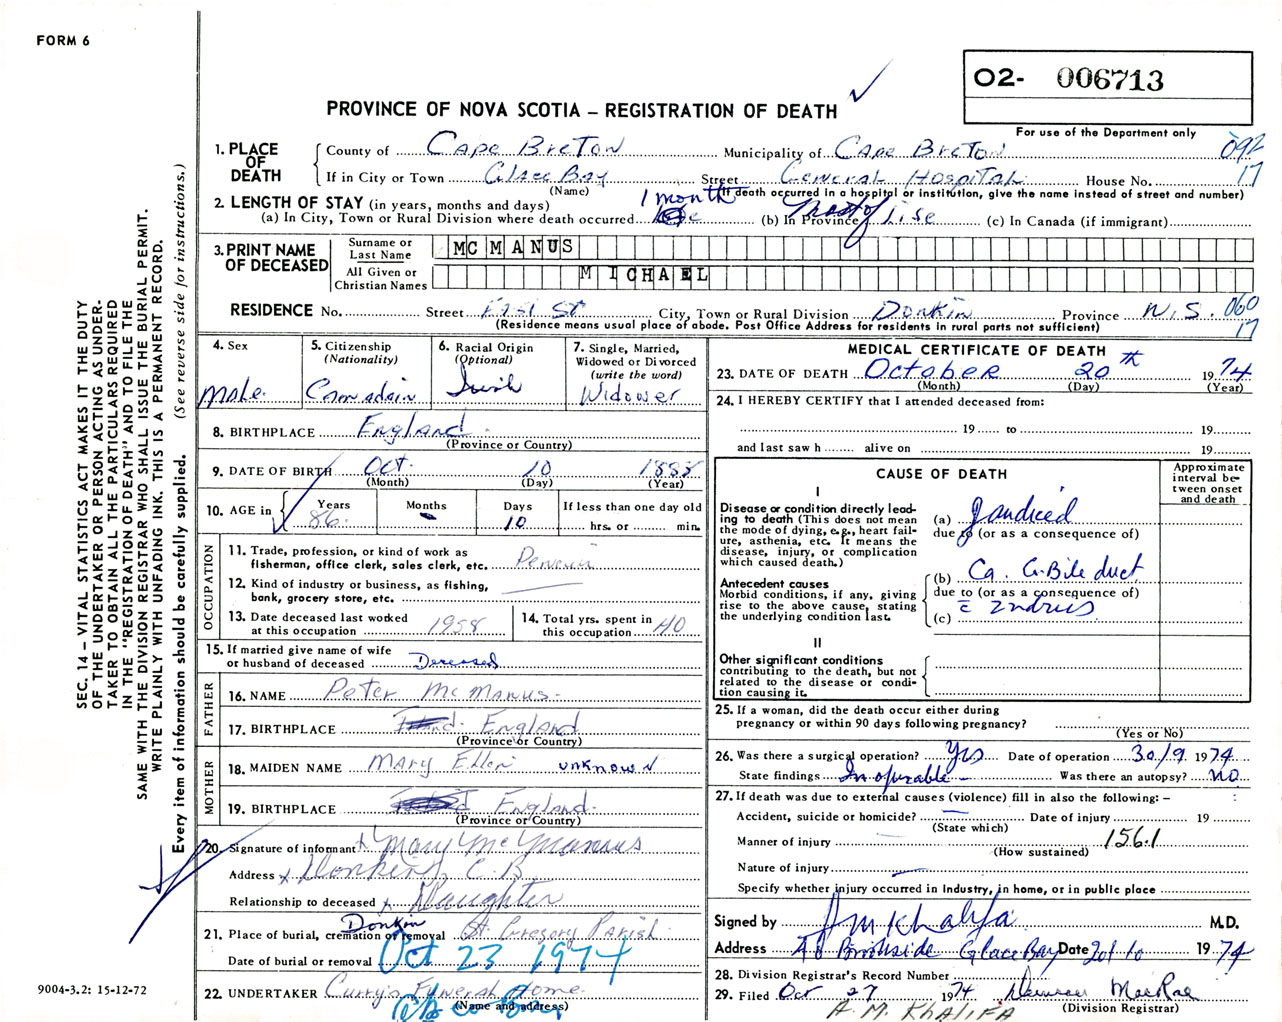 FORM 6
O2- 006713
PROVINCE OF NOVA SCOTIA – REGISTRATION OF DEATH
For use of the Department only
092
17
1. PLACE OF DEATH
County of Cape Breton Municipality of Cape Breton
If in City or Town Glace Bay Street General Hospital House No.
(Name) (If death occurred in a hospital or institution, give the name instead of street and number)
2. LENGTH OF STAY (in years, months and days) 1 month
(a) In City, Town or Rural Division where death occurred (b) In Province Most of life (c) In Canada (if immigrant)
3. PRINT NAME OF DECEASED
Surname or Last Name MCMANUS
All Given or Christian Names MICHAEL
RESIDENCE No. Street East St City, Town or Rural Division Donkin Province N.S. 060
17
(Residence means usual place of abode. Post Office Address for residents in rural parts not sufficient)
4. Sex
male
5. Citizenship
(Nationality)
Canadain
6. Racial Origin
(Optional)
Irish
7. Single, Married, Widowed or Divorced
(write the word)
Widower
8. BIRTHPLACE England
(Province or Country)
9. DATE OF BIRTH Oct. 10 1888
(Month) (Day) (Year)
10. AGE in Years Months Days If less than one day old
86 - 10 hrs. or min.
OCCUPATION
11. Trade, profession, or kind of work as fisherman, office clerk, sales clerk, etc.
12. Kind of industry or business, as fishing, bank, grocery store, etc.
13. Date deceased last worked at this occupation 1958
14. Total yrs. spent in this occupation 40
15. If married give name of wife or husband of deceased Deceased
FATHER
16. NAME Peter McManus
17. BIRTHPLACE England
(Province or Country)
MOTHER
18. MAIDEN NAME Mary Ellen unknown
19. BIRTHPLACE England
(Province or Country)
20. Signature of informant x Mary McManus
Address x Donkin, C.B.
Relationship to deceased x Daughter
21. Place of burial, cremation or removal Donkin St. Gregory Parish
Date of burial or removal Oct 23 1974
22. UNDERTAKER Curry's Funeral Home
(Name and address)
MEDICAL CERTIFICATE OF DEATH
23. DATE OF DEATH October 20th 1974
(Month) (Day) (Year)
24. I HEREBY CERTIFY that I attended deceased from:
19 to 19
and last saw h alive on 19
CAUSE OF DEATH
Approximate interval between onset and death
I
Disease or condition directly leading to death (This does not mean the mode of dying, e.g., heart failure, asthenia, etc. It means the disease, injury, or complication which caused death.)
(a) Jaundiced
due to (or as a consequence of)
Antecedent causes
Morbid conditions, if any, giving rise to the above cause, stating the underlying condition last.
(b) Ca. C. Bile duct
due to (or as a consequence of)
(c)
II
Other significant conditions contributing to the death, but not related to the disease or condition causing it.
25. If a woman, did the death occur either during pregnancy or within 90 days following pregnancy?
(Yes or No)
26. Was there a surgical operation? Yes Date of operation 30/9 1974
State findings Inoperable - Was there an autopsy? NO
27. If death was due to external causes (violence) fill in also the following: –
Accident, suicide or homicide? Date of injury 19
(State which)
Manner of injury 156.1
(How sustained)
Nature of injury
Specify whether injury occurred in Industry, in home, or in public place
Signed by A M Khalifa M.D.
Address 48 Brookside Glace Bay Date 20/10 1974
28. Division Registrar's Record Number
29. Filed Oct 27 1974 MacRae
(Division Registrar)
A. M. KHALIFA
SEC. 14 – VITAL STATISTICS ACT MAKES IT THE DUTY
OF THE UNDERTAKER OR PERSON ACTING AS UNDER-
TAKER TO OBTAIN ALL THE PARTICULARS REQUIRED
IN THE "REGISTRATION OF DEATH" AND TO FILE THE
SAME WITH THE DIVISION REGISTRAR WHO SHALL ISSUE THE BURIAL PERMIT.
WRITE PLAINLY WITH UNFADING INK. THIS IS A PERMANENT RECORD.
Every item of information should be carefully supplied. (See reverse side for instructions.)
9004-3.2: 15-12-72